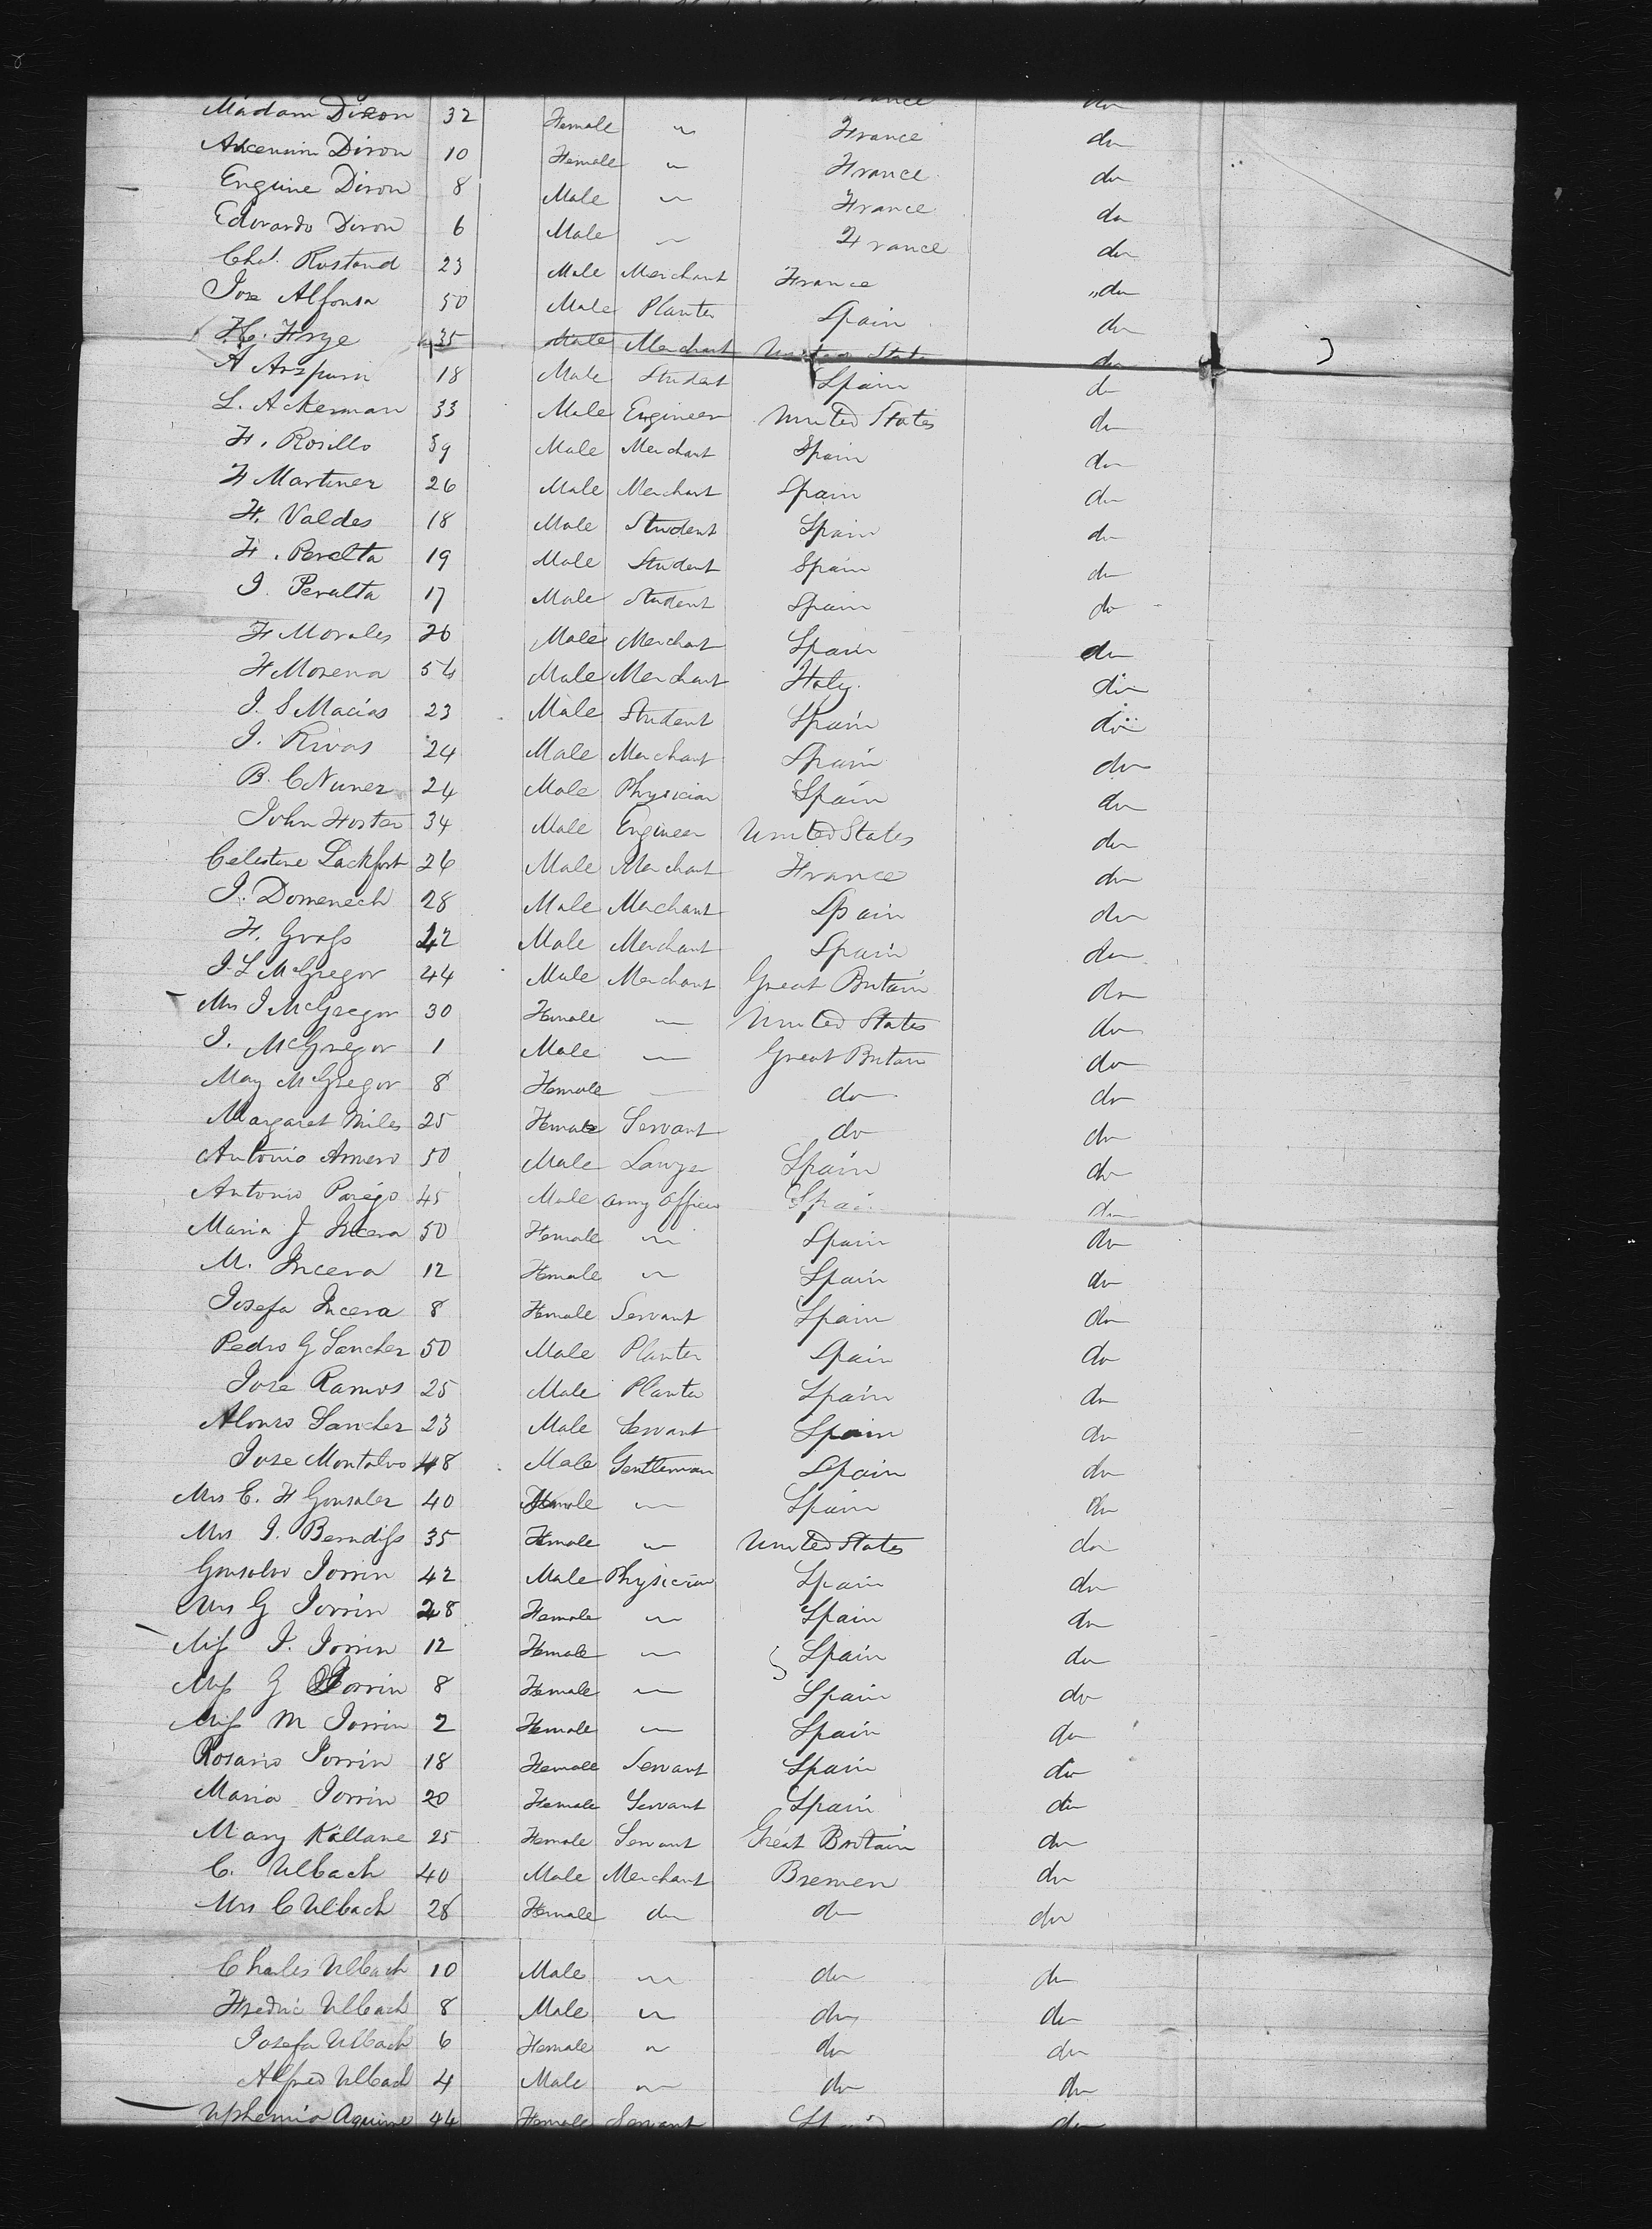 Madam Diron 32 Female " France do
Ascensum Diron 10 Female " France do
Enguine Diron 8 Male " France do
Edovardo Diron 6 Male " France do
Chs. Rostand 23 Male Merchant France do
Jose Alfonsa 50 Male Planter Spain do
H. Frye 35 Male Merchant United States do
A 18 Male Student Spain do
L. Ackerman 33 Male Engineer United States do
F. Rosillo 59 Male Merchant Spain do
F Martinez 26 Male Merchant Spain do
F. Valdes 18 Male Student Spain do
F. Peralta 19 Male Student Spain do
J. Peralta 17 Male Student Spain do
F Morales 26 Male Merchant Spain do
F Morena 54 Male Merchant Italy do
J. S Macias 23 Male Student Spain do
J. Rivas 24 Male Merchant Spain do
B. C Nunez 24 Male Physician Spain do
John Foster 34 Male Engineer United States do
Celestine Lackfort 26 Male Merchant France do
J. Domenech 28 Male Merchant Spain do
F. Grass 42 Male Merchant Spain do
J. L McGregor 44 Male Merchant Great Britain do
Mrs J McGregor 30 Female " United States do
J. McGregor 1 Male " Great Britain do
May McGregor 8 Female do do
Margaret Miles 25 Female Servant do do
Antonio Armero 50 Male Lawyer Spain do
Antonio Parego 45 Male Army Officer Spain do
Maria J Incera 50 Female " Spain do
M. Incera 12 Female " Spain do
Josefa Incera 8 Female Servant Spain do
Pedro G Sanchez 50 Male Planter Spain do
Jose Ramos 25 Male Planter Spain do
Alonzo Sanchez 23 Male Servant Spain do
Jose Montalvo 48 Male Gentleman Spain do
Mrs C. F Gonsalez 40 Female " Spain do
Mrs J. Berndiss 35 Female " United States do
Gonsalvo Jorrin 42 Male Physician Spain do
Mrs G Jorrin 28 Female " Spain do
Miss J. Jorrin 12 Female " Spain do
Miss G Jorrin 8 Female " Spain do
Miss M Jorrin 2 Female " Spain do
Rosario Jorrin 18 Female Servant Spain do
Maria Jorrin 20 Female Servant Spain do
Mary Kallane 25 Female Servant Great Britain do
C. Ulbach 40 Male Merchant Bremen do
Mrs C Ulbach 28 Female do do do
Charles Ulbach 10 Male " do do
Fredric Ulbach 8 Male " do do
Josefa Ulbach 6 Female " do do
Alfred Ulbach 4 Male " do do
Uphemia Aguirre 44 Female Servant Spain do